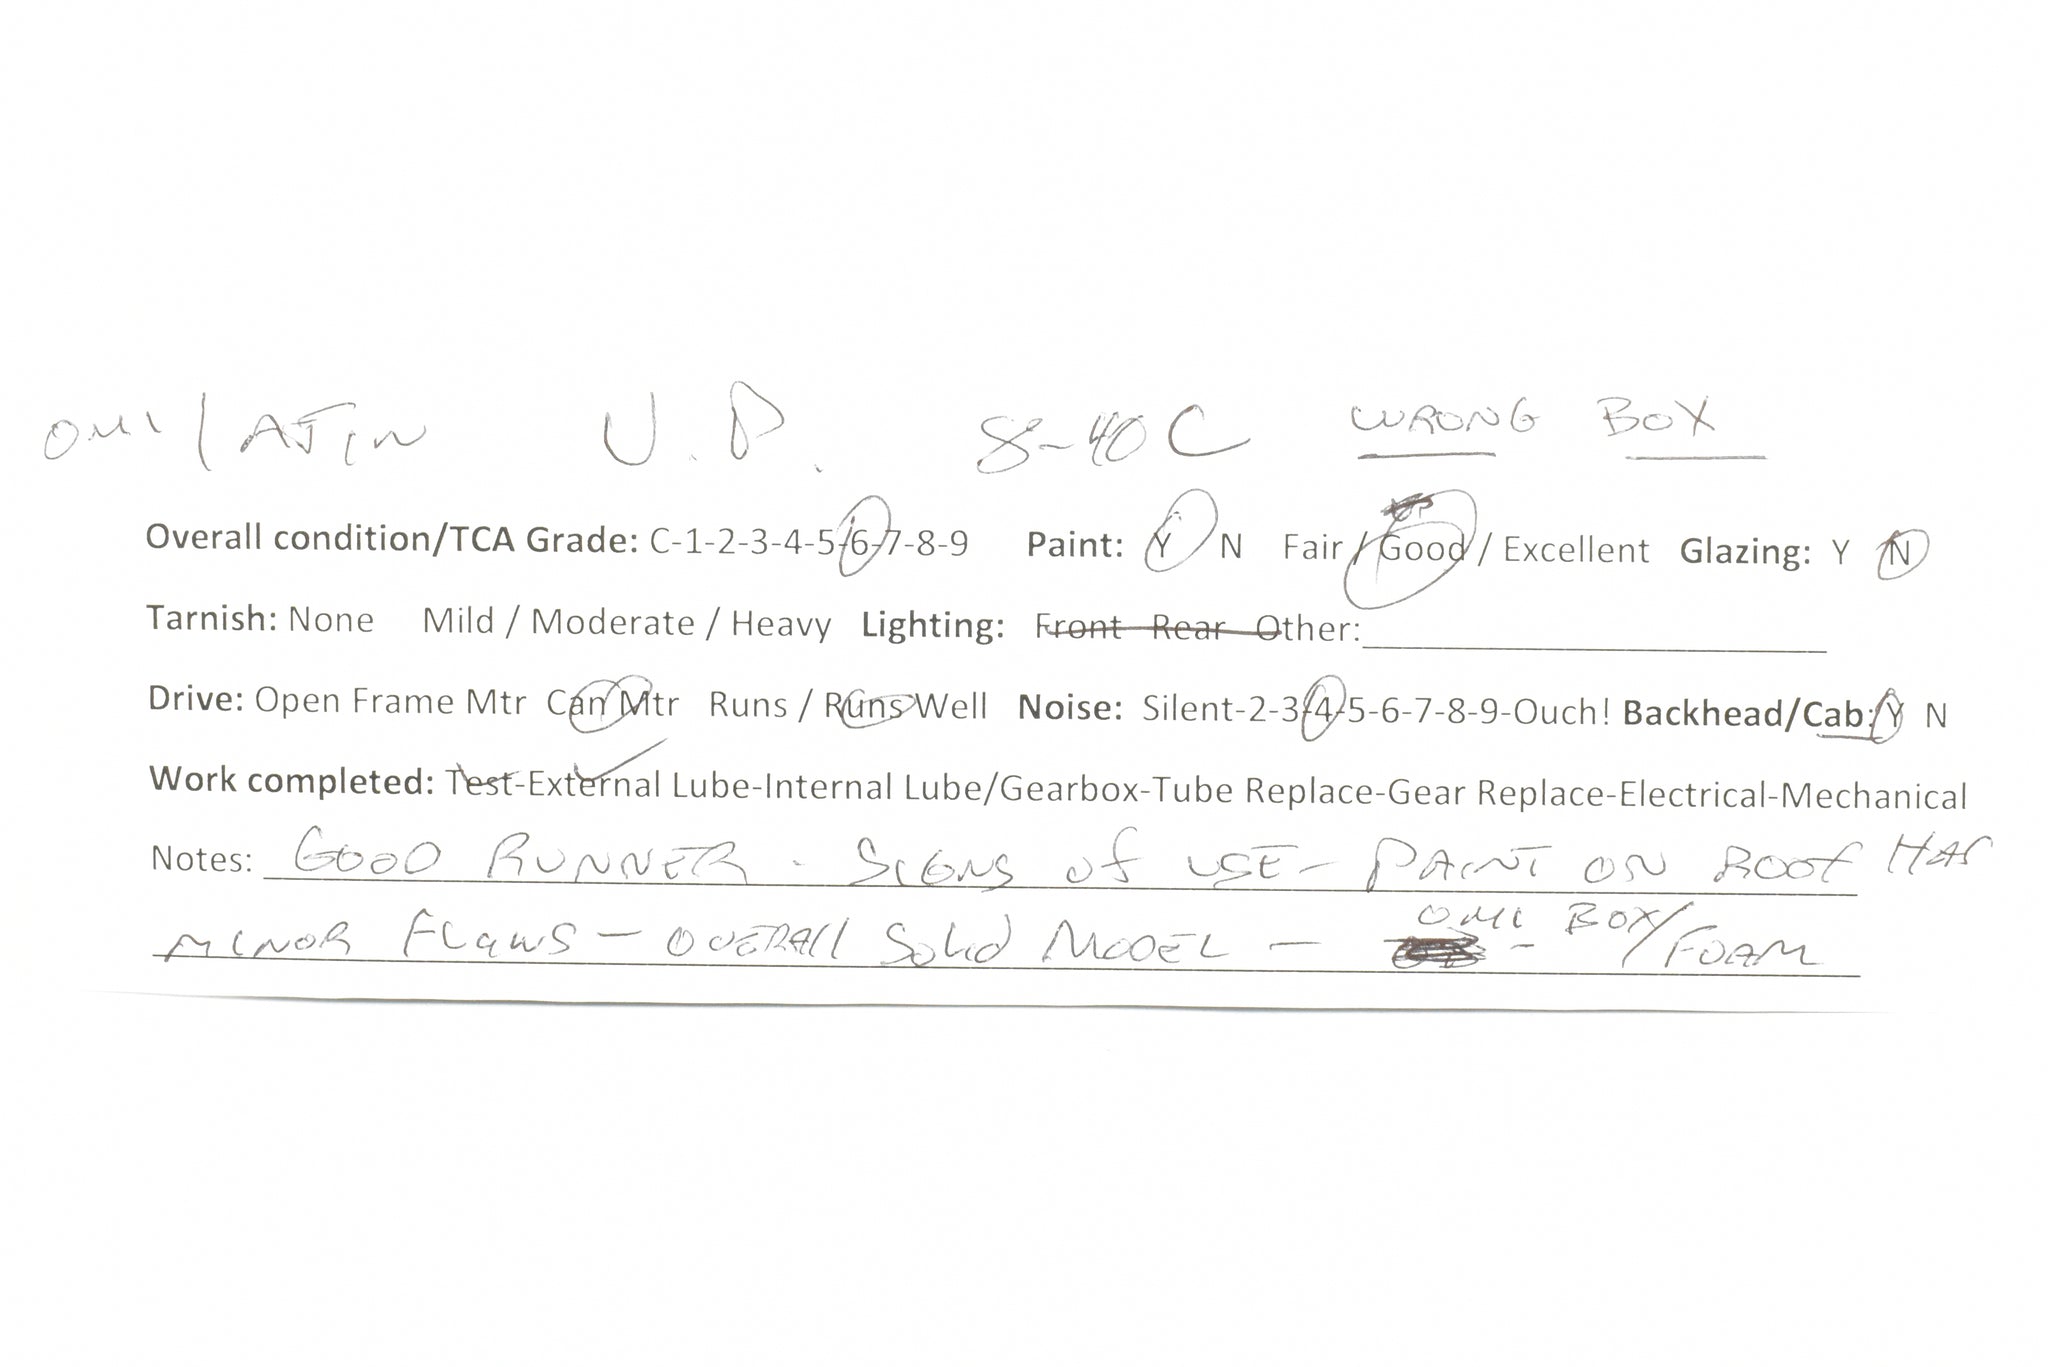 OMI / AJIN U.P. 8-40C WRONG BOX
Overall condition/TCA Grade: C-1-2-3-4-5-6-7-8-9 Paint: Y N Fair / Good / Excellent Glazing: Y N
Tarnish: None Mild / Moderate / Heavy Lighting: Front Rear Other:
Drive: Open Frame Mtr Can Mtr Runs / Runs Well Noise: Silent-2-3-4-5-6-7-8-9-Ouch! Backhead/Cab: Y N
Work completed: Test-External Lube-Internal Lube/Gearbox-Tube Replace-Gear Replace-Electrical-Mechanical
Notes: GOOD RUNNER - SIGNS of USE - PAINT ON ROOf HAS
MINOR FLAWS - OVERAll Solid MODEL - OMI BOX/FOAM